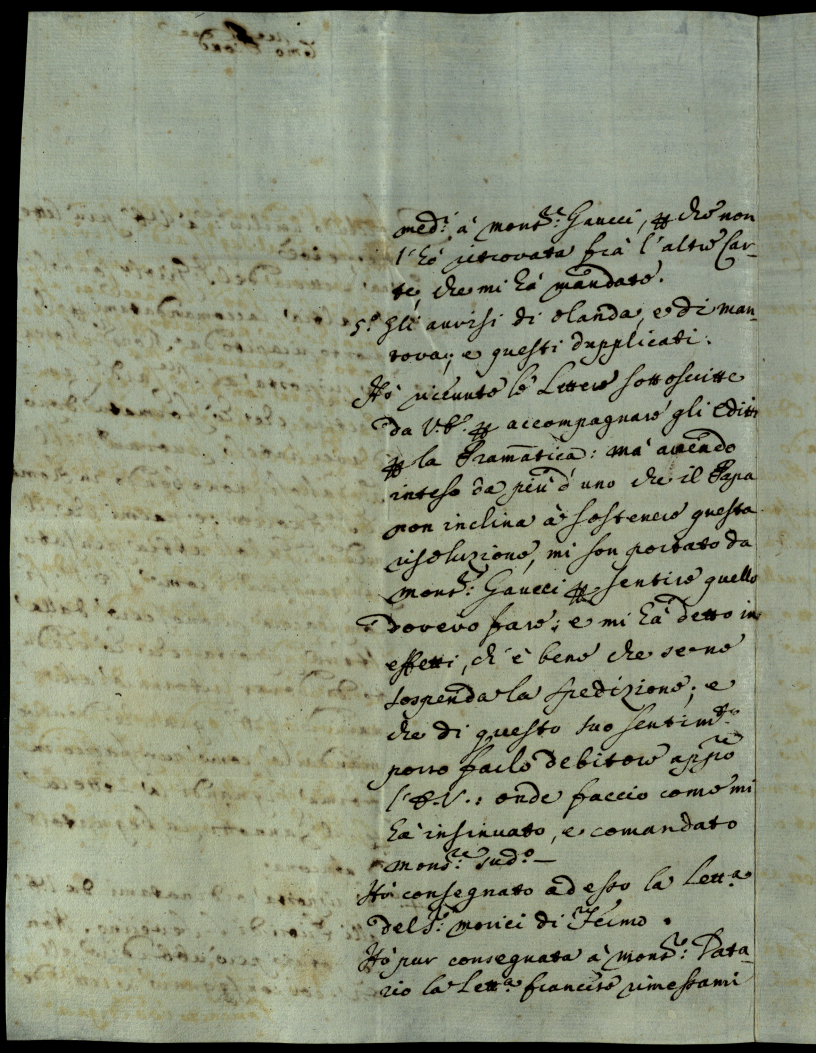 med.ᵃ à Mons.ʳᵉ: Gaucci, p che non
l'hò ritrovata frà l'altre Car-
te, che mi hà mandate.
5.° Gli avvisi di Olanda, e di Man-
tova; e questi dupplicati.
Hò ricevute le Lettere sottoscritte
da V.E. p accompagnare gli Editti
p la Pram̃atica: mà avendo
inteso da più d'uno che il Papa
non inclina à sostenere questa
risoluzione, mi son portato da
Mons.ʳᵉ: Gaucci p sentire quello
dovevo fare; e mi hà detto in
effetti, ch'è bene che se ne
sospenda la spedizione; e
che di questo suo sentim.ᵗᵒ
posso farlo debitore app̃o
l'E.V.: onde faccio come mi
hà insinuato, e comandato
Mons.ʳᵉ sud.°—
Hò consegnato ad esso la Lett.ᵃ
del S.ʳ: Morici di Fermo.
Hò pur consegnata à Mons.ʳᵉ: Data-
rio la Lett.ᵃ francese rimessami